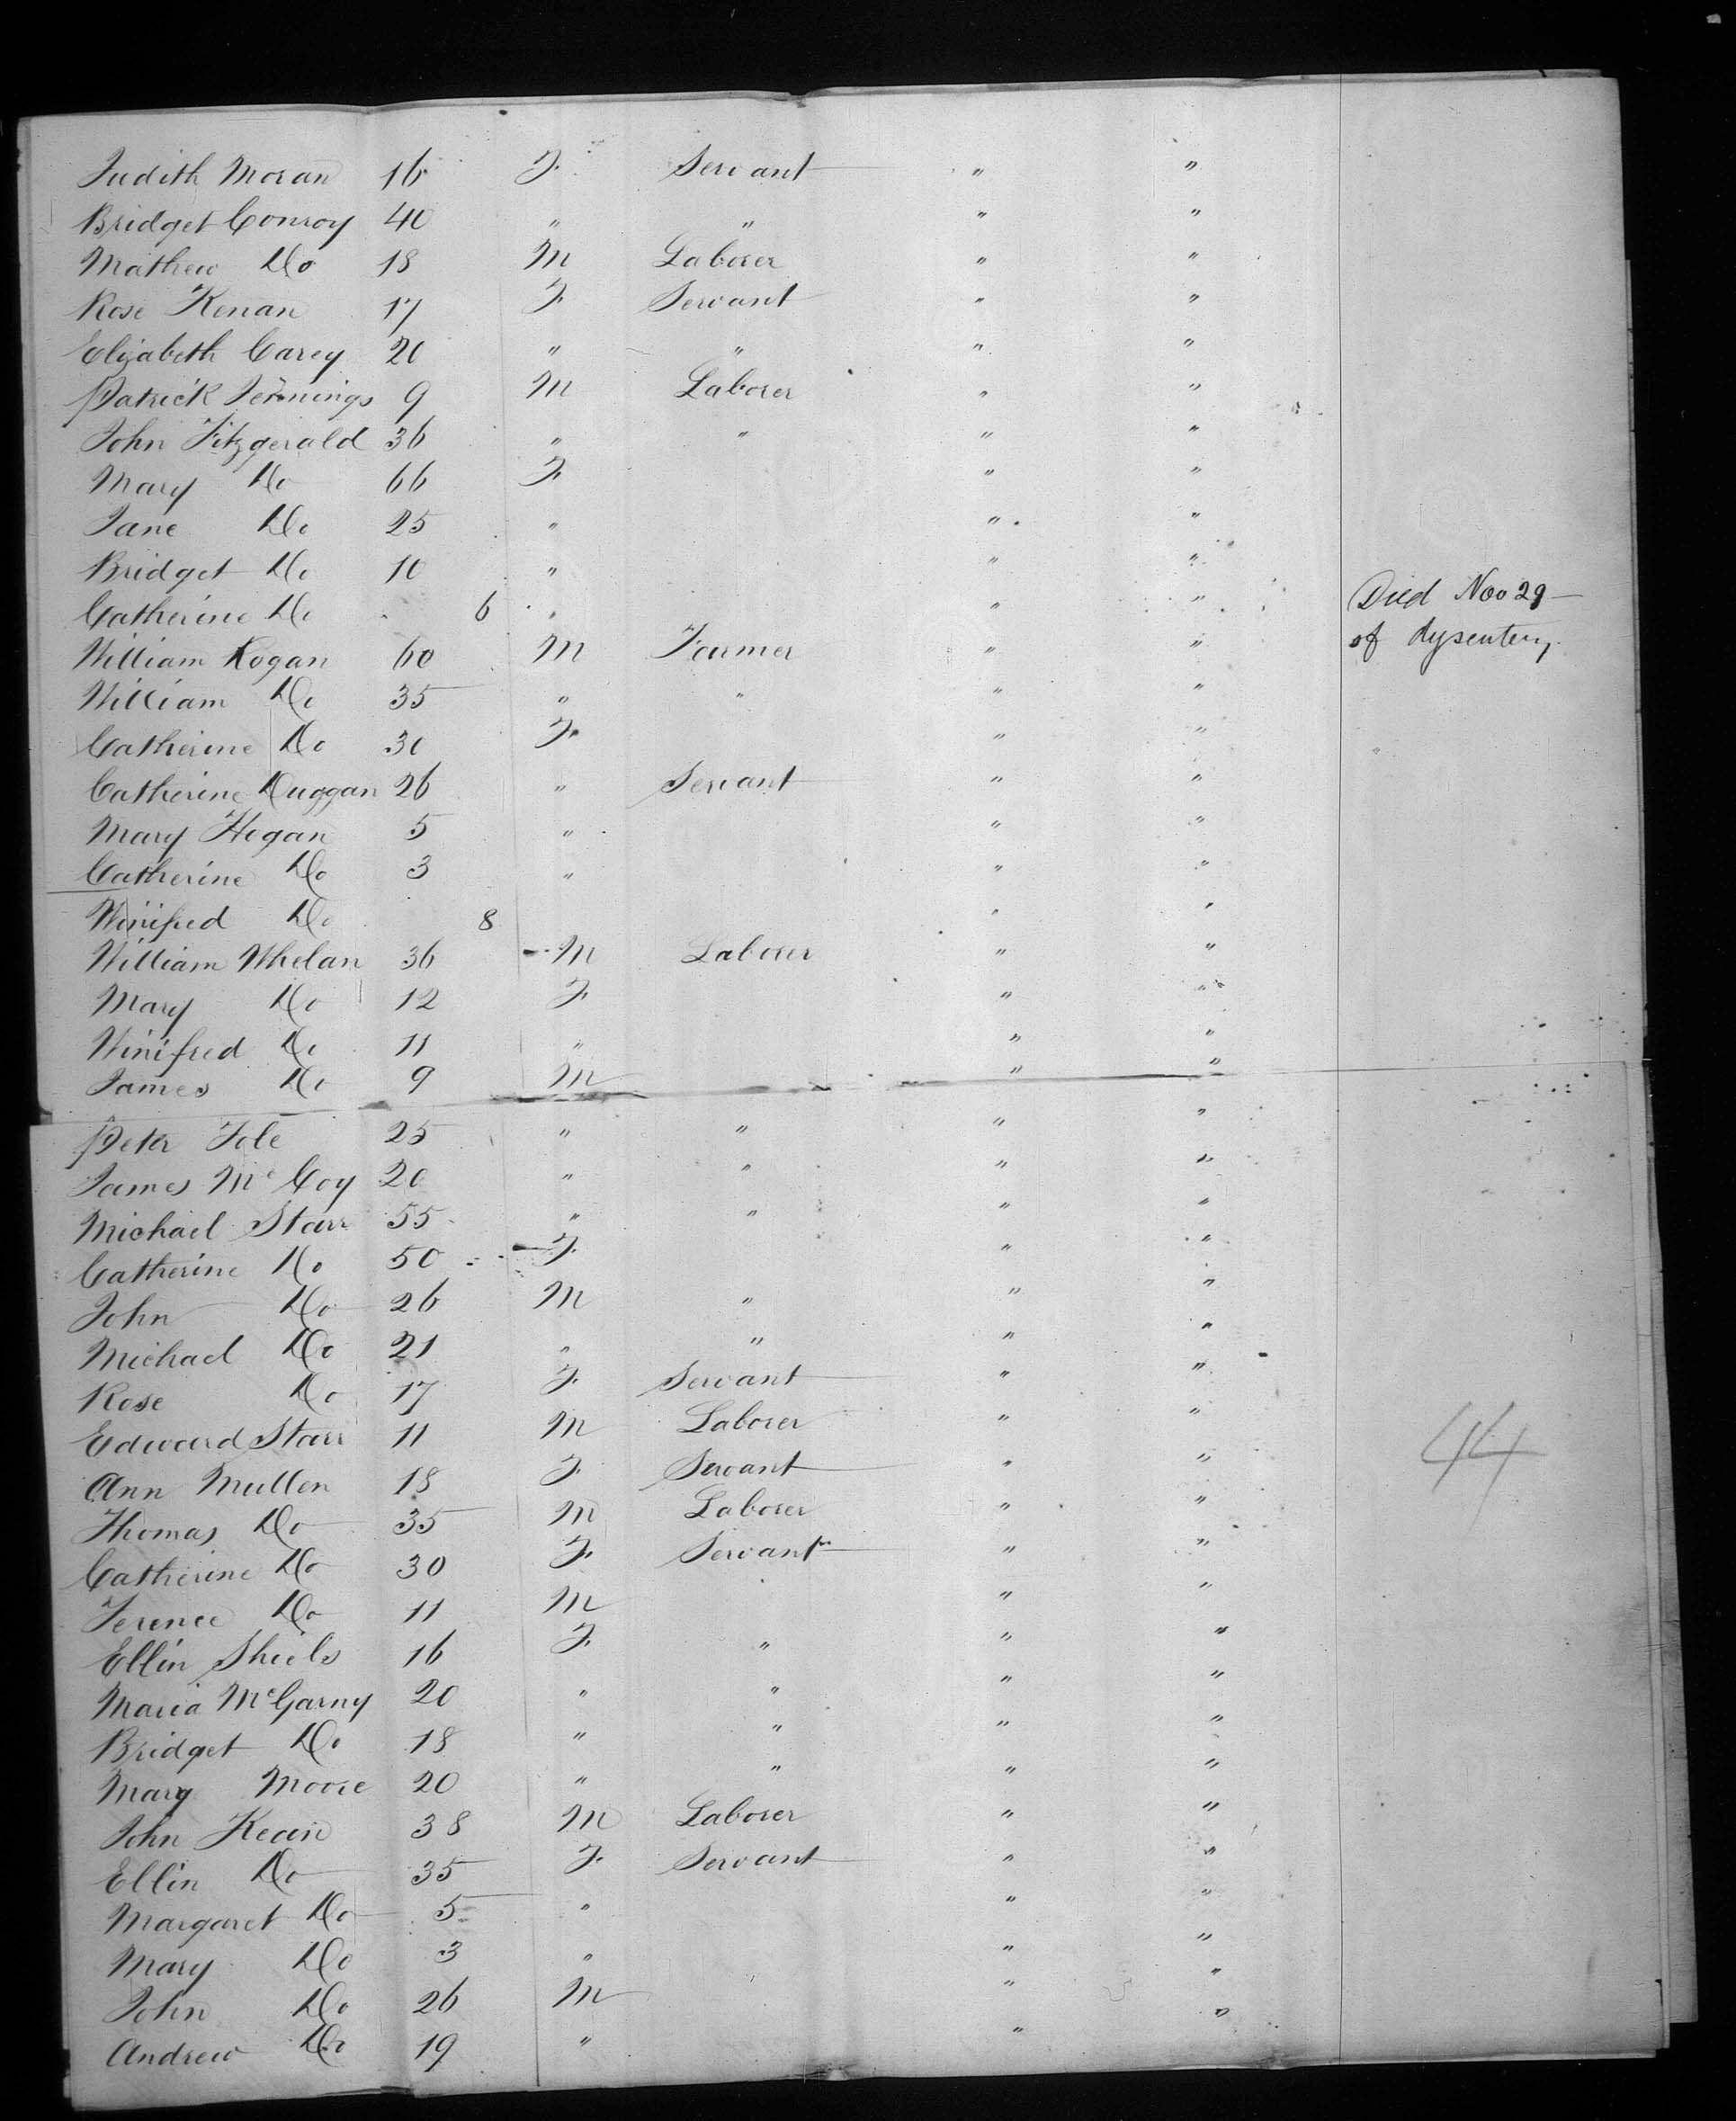 Judith Moran 16 F. Servant " "
Bridget Conroy 40 " " " "
Mathew Do 18 M Laborer " "
Rose Kenan 17 F. Servant " "
Elizabeth Carey 20 " " " "
Patrick Jennings 9 M Laborer " "
John Fitzgerald 36 " " " "
Mary Do 66 F. " "
Jane Do 25 " " "
Bridget Do 10 " " "
Catherine Do 6 " " " Died Nov 29
William Hogan 60 M Farmer " " of dysentery.
William Do 35 " " " "
Catherine Do 30 F. " "
Catherine Duggan 26 " Servant " "
Mary Hogan 5 " " "
Catherine Do 3 " " "
Winifred Do 8 " "
William Whelan 36 M Laborer " "
Mary Do 12 F. " "
Winifred Do 11 " " "
James Do 9 M " "
Peter Tole 25 " " " "
James McCoy 20 " " " "
Michael Starr 55 " " " "
Catherine Do 50 F. " "
John Do 26 M " " "
Michael Do 21 " " " "
Rose Do 17 F. Servant " "
Edward Starr 11 M Laborer " "
44
Ann Mullen 18 F. Servant " "
Thomas Do 35 M Laborer " "
Catherine Do 30 F. Servant " "
Terence Do 11 M " "
Ellin Shiels 16 F. " " "
Maria McGarny 20 " " " "
Bridget Do 18 " " " "
Mary Moore 20 " " " "
John Kean 38 M Laborer " "
Ellin Do 35 F. Servant " "
Margaret Do 5 " " "
Mary Do 3 " " "
John Do 26 M " "
Andrew Do 19 " " "